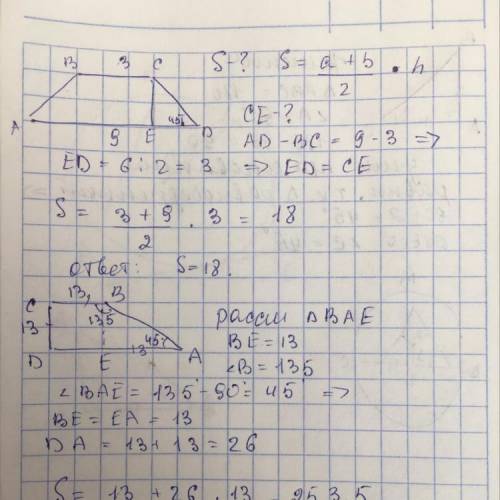 B 3 C S-? S = a + b / 2 · h
A 9 E 45° D CE-?
AD - BC = 9 - 3 =>
ED = 6 : 2 = 3 => ED = CE
S = 3 + 9 / 2 · 3 = 18
ответ: S = 18.
C 13 B
13 135 рассм △BAE
D E 13 45° A BE = 13
∠B = 135
∠BAE = 135° - 90° = 45° =>
BE = EA = 13
DA = 13 + 13 = 26
S = 13 + 26 · 13 = 253,5